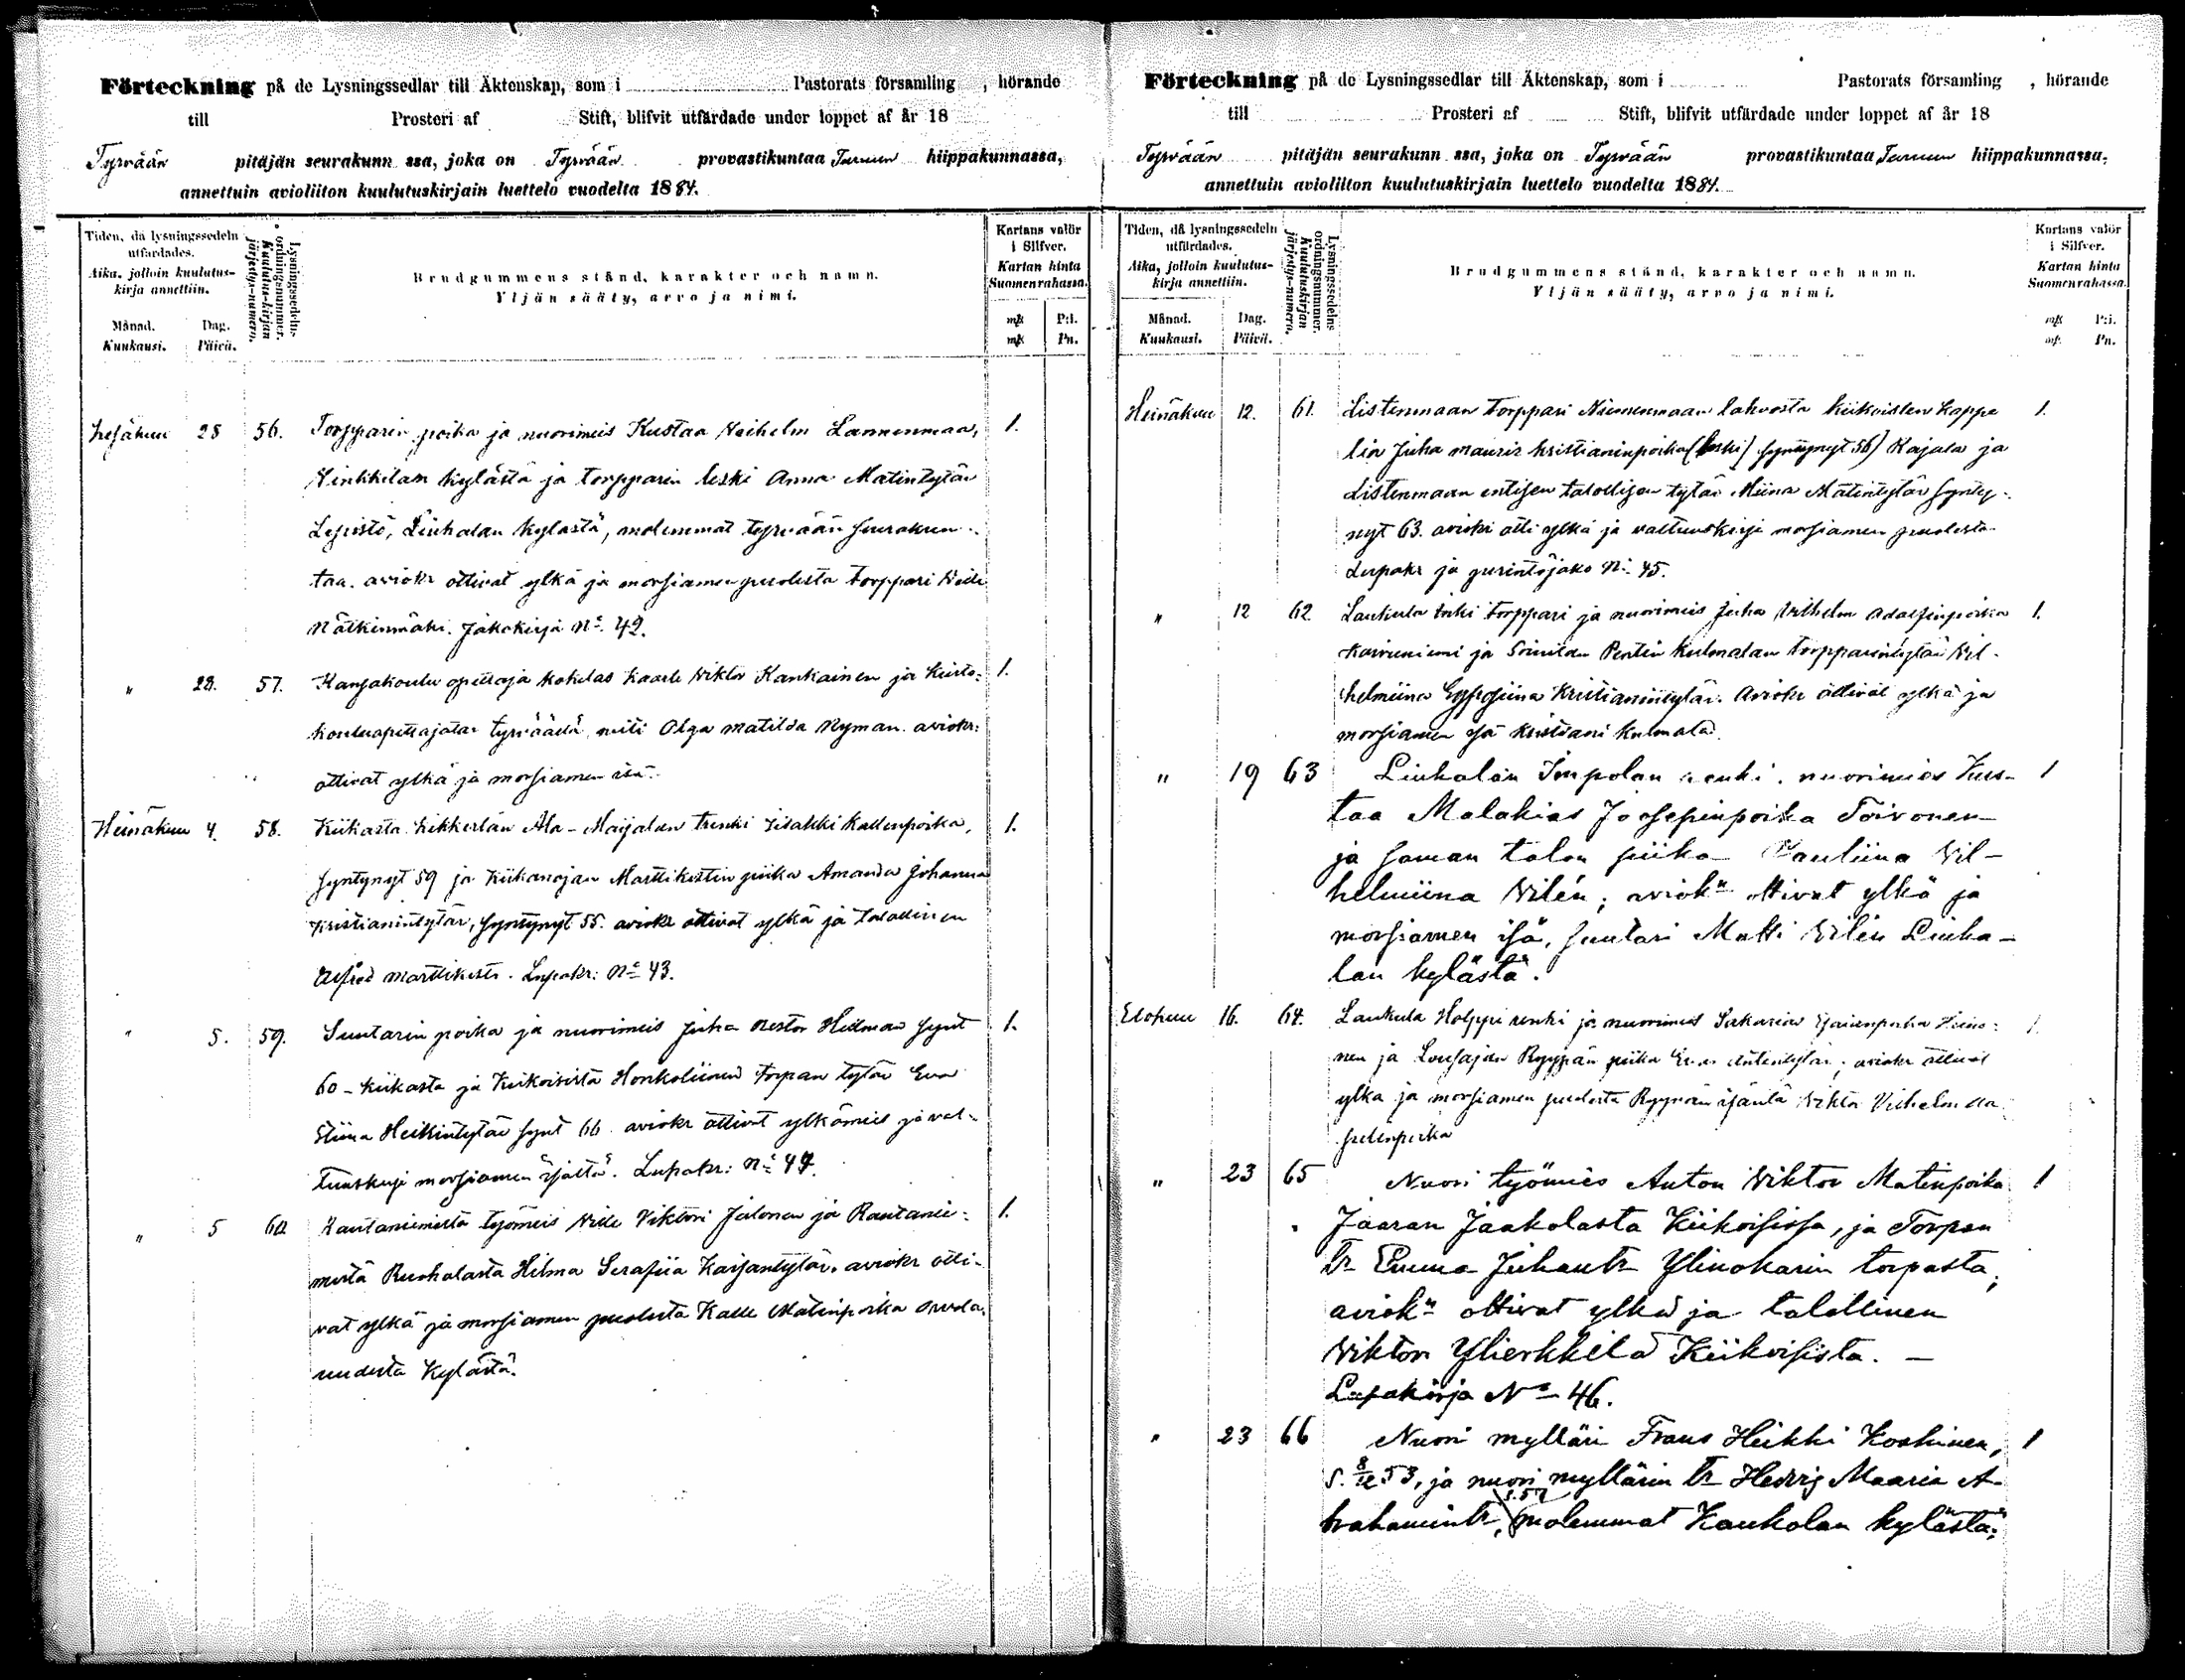 Förteckning på de Lysningssedlar till Äktenskap, som i Pastorats församling , hörande
till Prosteri af Stift, blifvit utfärdade under loppet af år 18
Tyrvään pitäjän seurakunn ssa, joka on Tyrvään provastikuntaa Turun hiippakunnassa,
annettuin avioliiton kuulutuskirjain luettelo vuodelta 1884.
Tiden, då lysningssedeln utfärdades.
Aika, jolloin kuulutus-kirja annettiin.
Månad. Dag.
Kuukausi. Päivä.
Lysningssedelns ordningsnummer.
Kuulutus-kirjan järjestys-numero.
Brudgummens stånd, karakter och namn.
Yljän sääty, arvo ja nimi.
Kartans valör i Silfver.
Kartan hinta Suomenrahassa.
mk P:i.
mk Pn.
Kesäkuu 28 56. Torpparin poika ja nuorimies Kustaa Vihelm Lammenmaa, 1.
kylästä ja torpparin leski Anna Matintytär
Lepistö, Liuhalan kylästä, molemmat tyrvään seurakun-
taa. aviokr ottivat ylkä ja morsiamen puolesta torppari
Nätkinmäki. Jakokirja No 42.
" 28. 57. Kansakoulu opettaja kokelas Kaarle Viktor Kankainen ja kierto- 1.
kouluopettajatar tyrväästä, neiti Olga Matilda Nyman. aviokr:
ottivat ylkä ja morsiamen isä.
Heinäkuu 4. 58. Kiikasta Kikkerlän Ala-Maijalan renki Iisakki Kallenpoika, 1.
syntynyt 59 ja Kiikanojan Marttikestin piika Amanda Johanna
Kristianintytär, syntynyt 55. aviokr ottivat ylkä ja talollinen
Alfred Marttikesti. Lupakr: No 43.
" 5. 59. Suutarin poika ja nuorimies Juha Nestor Hellman synt 1.
60 - Kiikasta ja Kiikoisista Honkoliinin torpan tytär Eva
Stiina Heikintytär synt 66. aviokr ottivat ylkämies ja val-
tuuskirja morsiamen isältä. Lupakr: No 44.
" 5 60. Rautaniemestä työmies Ville Viktori Jalonen ja Rautanie- 1.
mestä Ruohalasta Hilma Serafiia Kaisantytär. aviokr otti-
vat ylkä ja morsiamen puolesta Kalle Matinpoika
uudesta kylästä.
Förteckning på de Lysningssedlar till Äktenskap, som i Pastorats församling , hörande
till Prosteri af Stift, blifvit utfärdade under loppet af år 18
Tyrvään pitäjän seurakunn ssa, joka on Tyrvään provastikuntaa Turun hiippakunnassa,
annettuin avioliiton kuulutuskirjain luettelo vuodelta 1884.
Tiden, då lysningssedeln utfärdades.
Aika, jolloin kuulutus-kirja annettiin.
Månad. Dag.
Kuukausi. Päivä.
Lysningssedelns ordningsnummer.
Kuulutuskirjan järjestys-numero.
Brudgummens stånd, karakter och namn.
Yljän sääty, arvo ja nimi.
Kartans valör i Silfver.
Kartan hinta Suomenrahassa.
mk P:i.
mk Pn.
Heinäkuu 12. 61. Listenmaan torppari Niemenmaan Kiikoisten kappe 1.
lia Juha Mauris Kristianinpoika (leski) syntynyt 56) Kajala ja
Listenmaan entisen talollisen tytär Miina Matintytär synty-
nyt 63. aviokr otti ylkä ja valtuuskirja morsiamen puolesta.
Lupakr ja perintöjako No 45.
" 12 62. Laukula torppari ja nuorimies Juha Vilhelm Adolfinpoika 1.
Koivuniemi ja Pentin Kulmalan torpparintytär Vil-
helmiina Kristianintytär. Aviokr ottivat ylkä ja
morsiamen isä Kristiani Kulmala.
" 19 63 Liuhalan Impolan renki, nuorimies Kus- 1
taa Malakias Joosepinpoika Toivonen
ja saman talon piika Pauliina Vil-
helmiina Vilén; aviokn ottivat ylkä ja
morsiamen isä, suutari Matti Vilén Liuha-
lan kylästä.
Elokuu 16. 64. Laukula Holppi renki ja nuorimies Sakarias Heino- 1.
nen ja Lousajan Ryypän piika Eva Antintytär; aviokr ottivat
ylkä ja morsiamen puolesta Ryypän isäntä Viktor Vilhelm
" 23 65 Nuori työmies Anton Viktor Matinpoika 1
Jaaran Jaakolasta Kiikoisissa, ja Torpan
tr Emma Juhantr Ylinokarin torpasta;
aviokn ottivat ylkä ja talollinen
Viktor Ylierkkilä Kiikoisista. —
Lupakirja No 46.
" 23 66 Nuori mylläri Frans Heikki Koskinen, 1
s. 8/12 53, ja nuori myllärin tr Hedvig Maaria A-
s.57
brahamintr, molemmat Kaukolan kylästä;